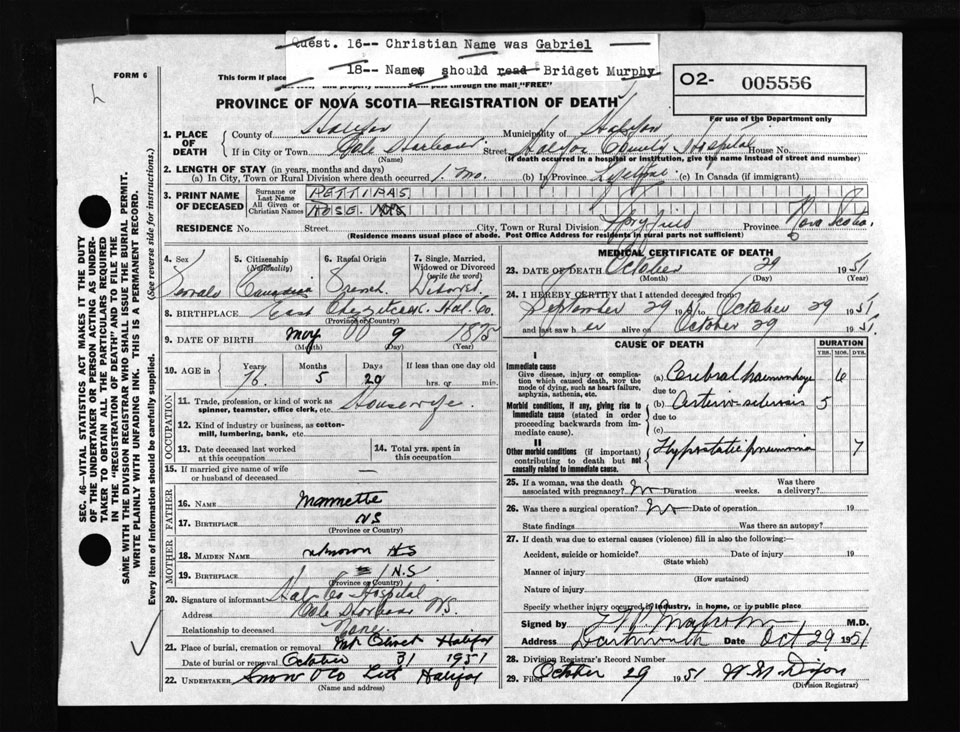 Quest. 16-- Christian Name was Gabriel
18-- Names should read Bridget Murphy
FORM 6
This form if place
through the mail "FREE"
O2- 005556
For use of the Department only
PROVINCE OF NOVA SCOTIA—REGISTRATION OF DEATH
1. PLACE OF DEATH
County of Halifax Municipality of Halifax
If in City or Town Cole Harbour Street Halifax County Hospital House No.
(Name) (If death occurred in a hospital or institution, give the name instead of street and number)
2. LENGTH OF STAY (in years, months and days)
(a) In City, Town or Rural Division where death occurred 1 mo. (b) In Province Lifetime (c) In Canada (if immigrant)
3. PRINT NAME OF DECEASED
Surname or Last Name PETTIPAS
All Given or Christian Names ROSE
RESIDENCE No. Street City, Town or Rural Division Province Nova Scotia
(Residence means usual place of abode. Post Office Address for residents in rural parts not sufficient)
4. Sex 5. Citizenship (Nationality) 6. Racial Origin 7. Single, Married, Widowed or Divorced (write the word)
Female Canadian French Widowed
8. BIRTHPLACE East Chezzetcook Hal. Co.
(Province or Country)
9. DATE OF BIRTH May 9 1875
(Month) (Day) (Year)
10. AGE in Years Months Days If less than one day old
76 5 20 hrs. or min.
OCCUPATION
11. Trade, profession, or kind of work as spinner, teamster, office clerk, etc. Housewife
12. Kind of industry or business, as cotton-mill, lumbering, bank, etc.
13. Date deceased last worked at this occupation
14. Total yrs. spent in this occupation
15. If married give name of wife or husband of deceased —
FATHER
16. NAME Mannette
17. BIRTHPLACE NS
(Province or Country)
MOTHER
18. MAIDEN NAME unknown
19. BIRTHPLACE N.S
(Province or Country)
20. Signature of informant Hal Co Hospital
Address Cole Harbour N.S.
Relationship to deceased None
21. Place of burial, cremation or removal Mt Olivet Halifax
Date of burial or removal October 31 1951
22. UNDERTAKER Snow & Co Ltd Halifax
(Name and address)
MEDICAL CERTIFICATE OF DEATH
23. DATE OF DEATH October 29 1951
(Month) (Day) (Year)
24. I HEREBY CERTIFY that I attended deceased from
September 29 1951 to October 29 1951
and last saw her alive on October 29 1951.
CAUSE OF DEATH DURATION
YRS. MOS. DYS.
I
Immediate cause
Give disease, injury or complication which caused death, NOT the mode of dying, such as heart failure, asphyxia, asthenia, etc.
(a) Cerebral haemorrhage 6
due to
Morbid conditions, if any, giving rise to immediate cause (stated in order proceeding backwards from immediate cause).
(b) Arterio-sclerosis 5
due to
(c)
II
Other morbid conditions (if important) contributing to death but not causally related to immediate cause.
Hypostatic pneumonia 7
25. If a woman, was the death associated with pregnancy? No Duration weeks. Was there a delivery?
26. Was there a surgical operation? No Date of operation 19
State findings Was there an autopsy?
27. If death was due to external causes (violence) fill in also the following:—
Accident, suicide or homicide? Date of injury 19
(State which)
Manner of injury
(How sustained)
Nature of injury
Specify whether injury occurred in industry, in home, or in public place
Signed by M.D.
Address Dartmouth Date Oct 29 1951
28. Division Registrar's Record Number
29. Filed October 29 1951 W M Dixon
(Division Registrar)
SEC. 46—VITAL STATISTICS ACT MAKES IT THE DUTY
OF THE UNDERTAKER OR PERSON ACTING AS UNDER-
TAKER TO OBTAIN ALL THE PARTICULARS REQUIRED
IN THE "REGISTRATION OF DEATH" AND TO FILE THE
SAME WITH THE DIVISION REGISTRAR WHO SHALL ISSUE THE BURIAL PERMIT.
WRITE PLAINLY WITH UNFADING INK. THIS IS A PERMANENT RECORD.
Every item of information should be carefully supplied. (See reverse side for instructions.)